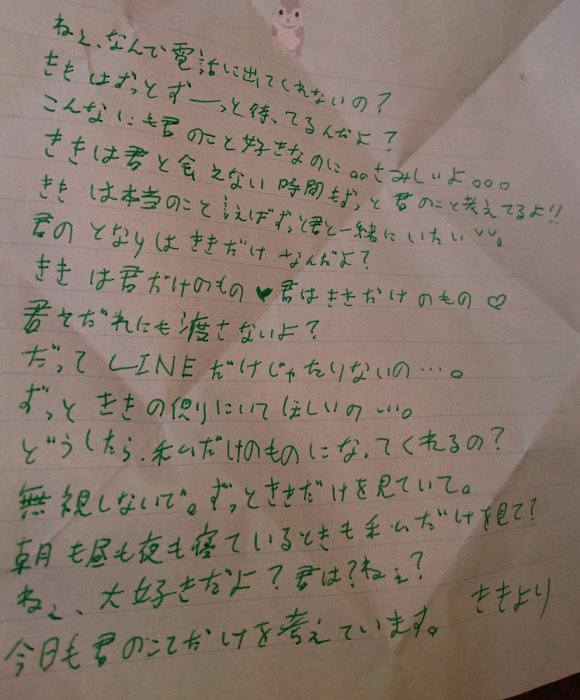 ねぇ、なんで電話に出てくれないの？
ききはずっとずーっと待ってるんだよ？
こんなにも君のこと好きなのに。。さみしいよ。。。
ききは君と会えない時間もずっと君のこと考えてるよ!!
ききは本当のこと言えばずっと君と一緒にいたい
君のとなりはききだけなんだよ？
ききは君だけのもの♥君はききだけのもの♡
君をだれにも渡さないよ？
だってLINEだけじゃたりないの…。
ずっとききの側りにいてほしいの…。
どうしたら、私だけのものになってくれるの？
無視しないで。ずっとききだけを見ていて。
朝も昼も夜も寝ているときも私だけを見て？
ねぇ、大好きだよ？君は？ねぇ？
今日も君のこてだけを考えています。ききより